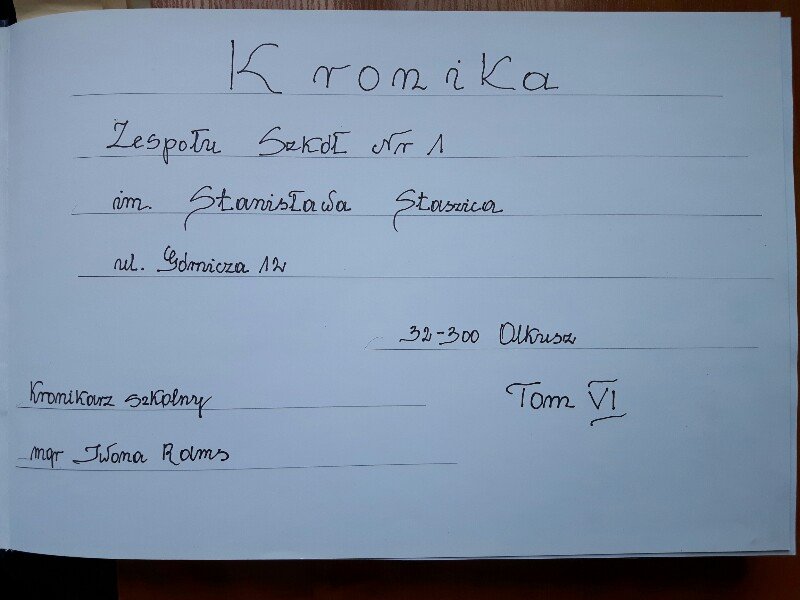 Kronika
Zespołu Szkół Nr 1
im. Stanisława Staszica
ul. Górnicza 12
32-300 Olkusz
Kronikarz szkolny
Tom VI
mgr Iwona Rams